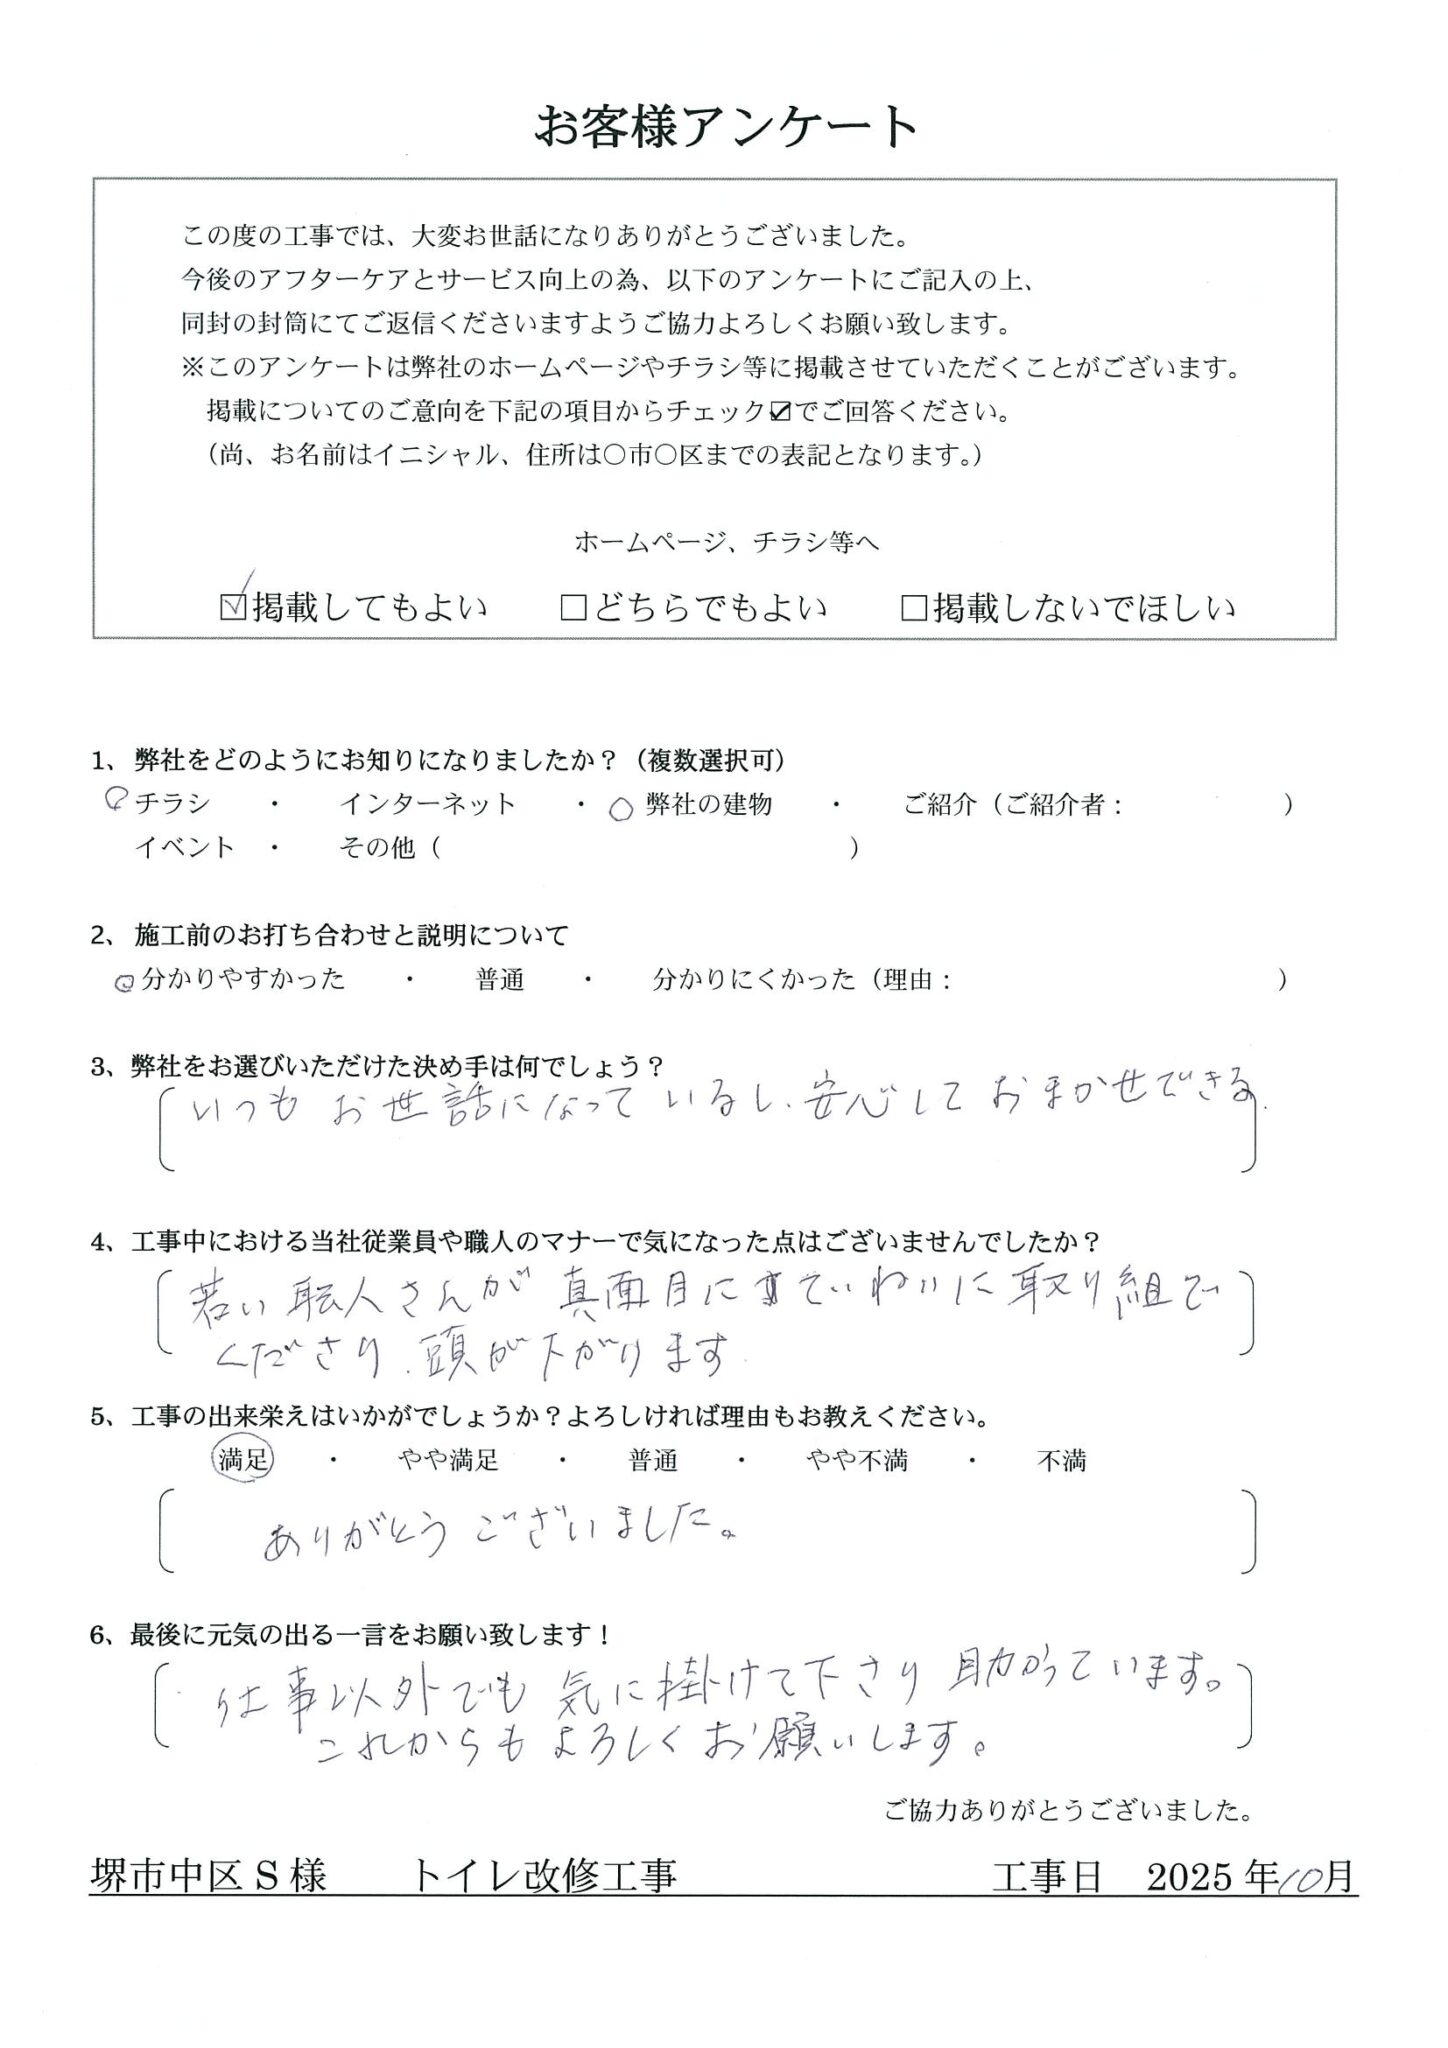 お客様アンケート
この度の工事では、大変お世話になりありがとうございました。
今後のアフターケアとサービス向上の為、以下のアンケートにご記入の上、
同封の封筒にてご返信くださいますようご協力よろしくお願い致します。
※このアンケートは弊社のホームページやチラシ等に掲載させていただくことがございます。
掲載についてのご意向を下記の項目からチェック☑でご回答ください。
（尚、お名前はイニシャル、住所は〇市〇区までの表記となります。）
ホームページ、チラシ等へ
☑掲載してもよい　□どちらでもよい　□掲載しないでほしい
1、弊社をどのようにお知りになりましたか？（複数選択可）
○チラシ　・　インターネット　・　○弊社の建物　・　ご紹介（ご紹介者：　）
イベント　・　その他（　）
2、施工前のお打ち合わせと説明について
○分かりやすかった　・　普通　・　分かりにくかった（理由：　）
3、弊社をお選びいただけた決め手は何でしょう？
いつもお世話になっているし、安心しておまかせできる。
4、工事中における当社従業員や職人のマナーで気になった点はございませんでしたか？
若い職人さんが真面目にていねいに取り組んで
くださり、頭が下がります
5、工事の出来栄えはいかがでしょうか？よろしければ理由もお教えください。
満足　・　やや満足　・　普通　・　やや不満　・　不満
ありがとうございました。
6、最後に元気の出る一言をお願い致します！
仕事以外でも気に掛けて下さり助かっています。
これからもよろしくお願いします。
ご協力ありがとうございました。
堺市中区Ｓ様　トイレ改修工事　工事日　2025年10月